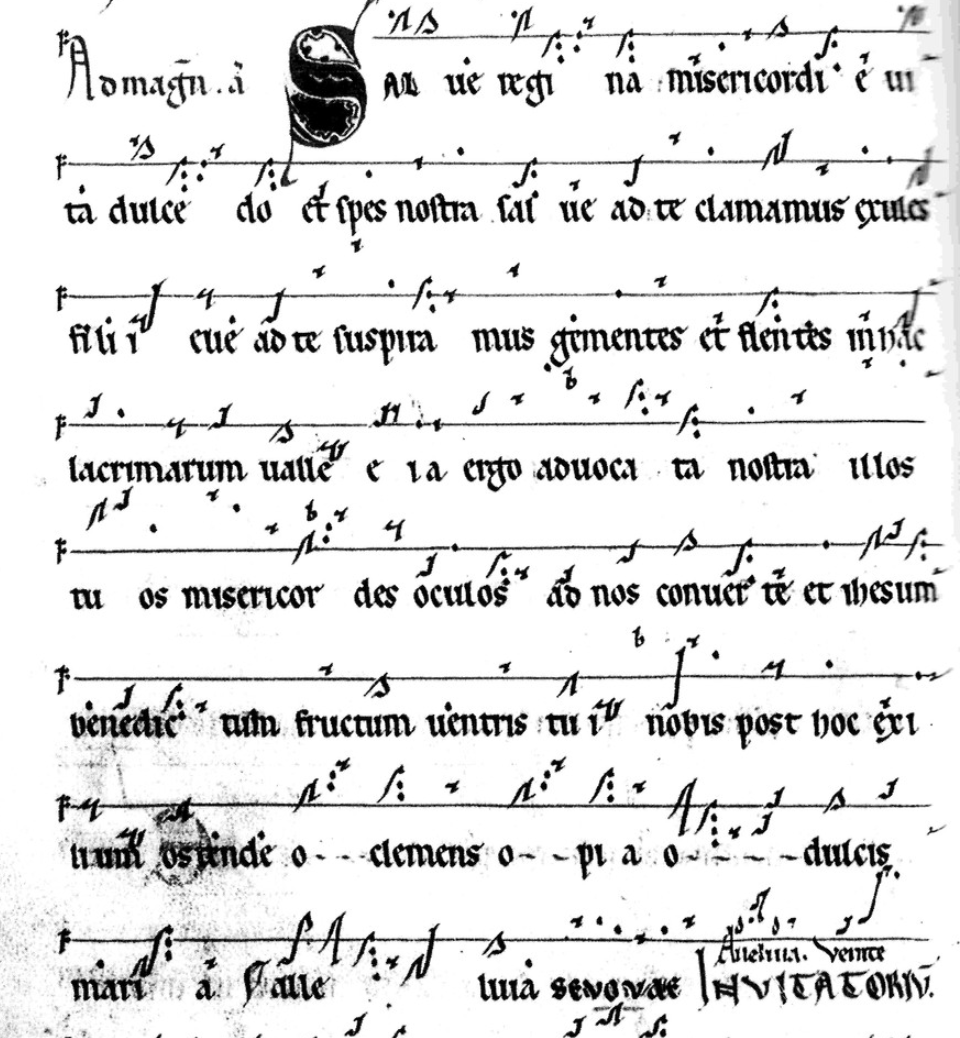 Ad magn̄. a̅ SAL ve regi na misericordi e vi
ta dulce do et spes nostra sal ve ad te clamamus exules
filii eve ad te suspira mus gementes et flentes in hac
lacrimarum valle e ia ergo advoca ta nostra illos
tu os misericor des oculos ad nos conver te et ihesum
benedic tum fructum ventris tui nobis post hoc exi
lium ostende o - - clemens o - - pi a o - - - - dulcis
mari a alle luia Venite
INVITATORIŪ.